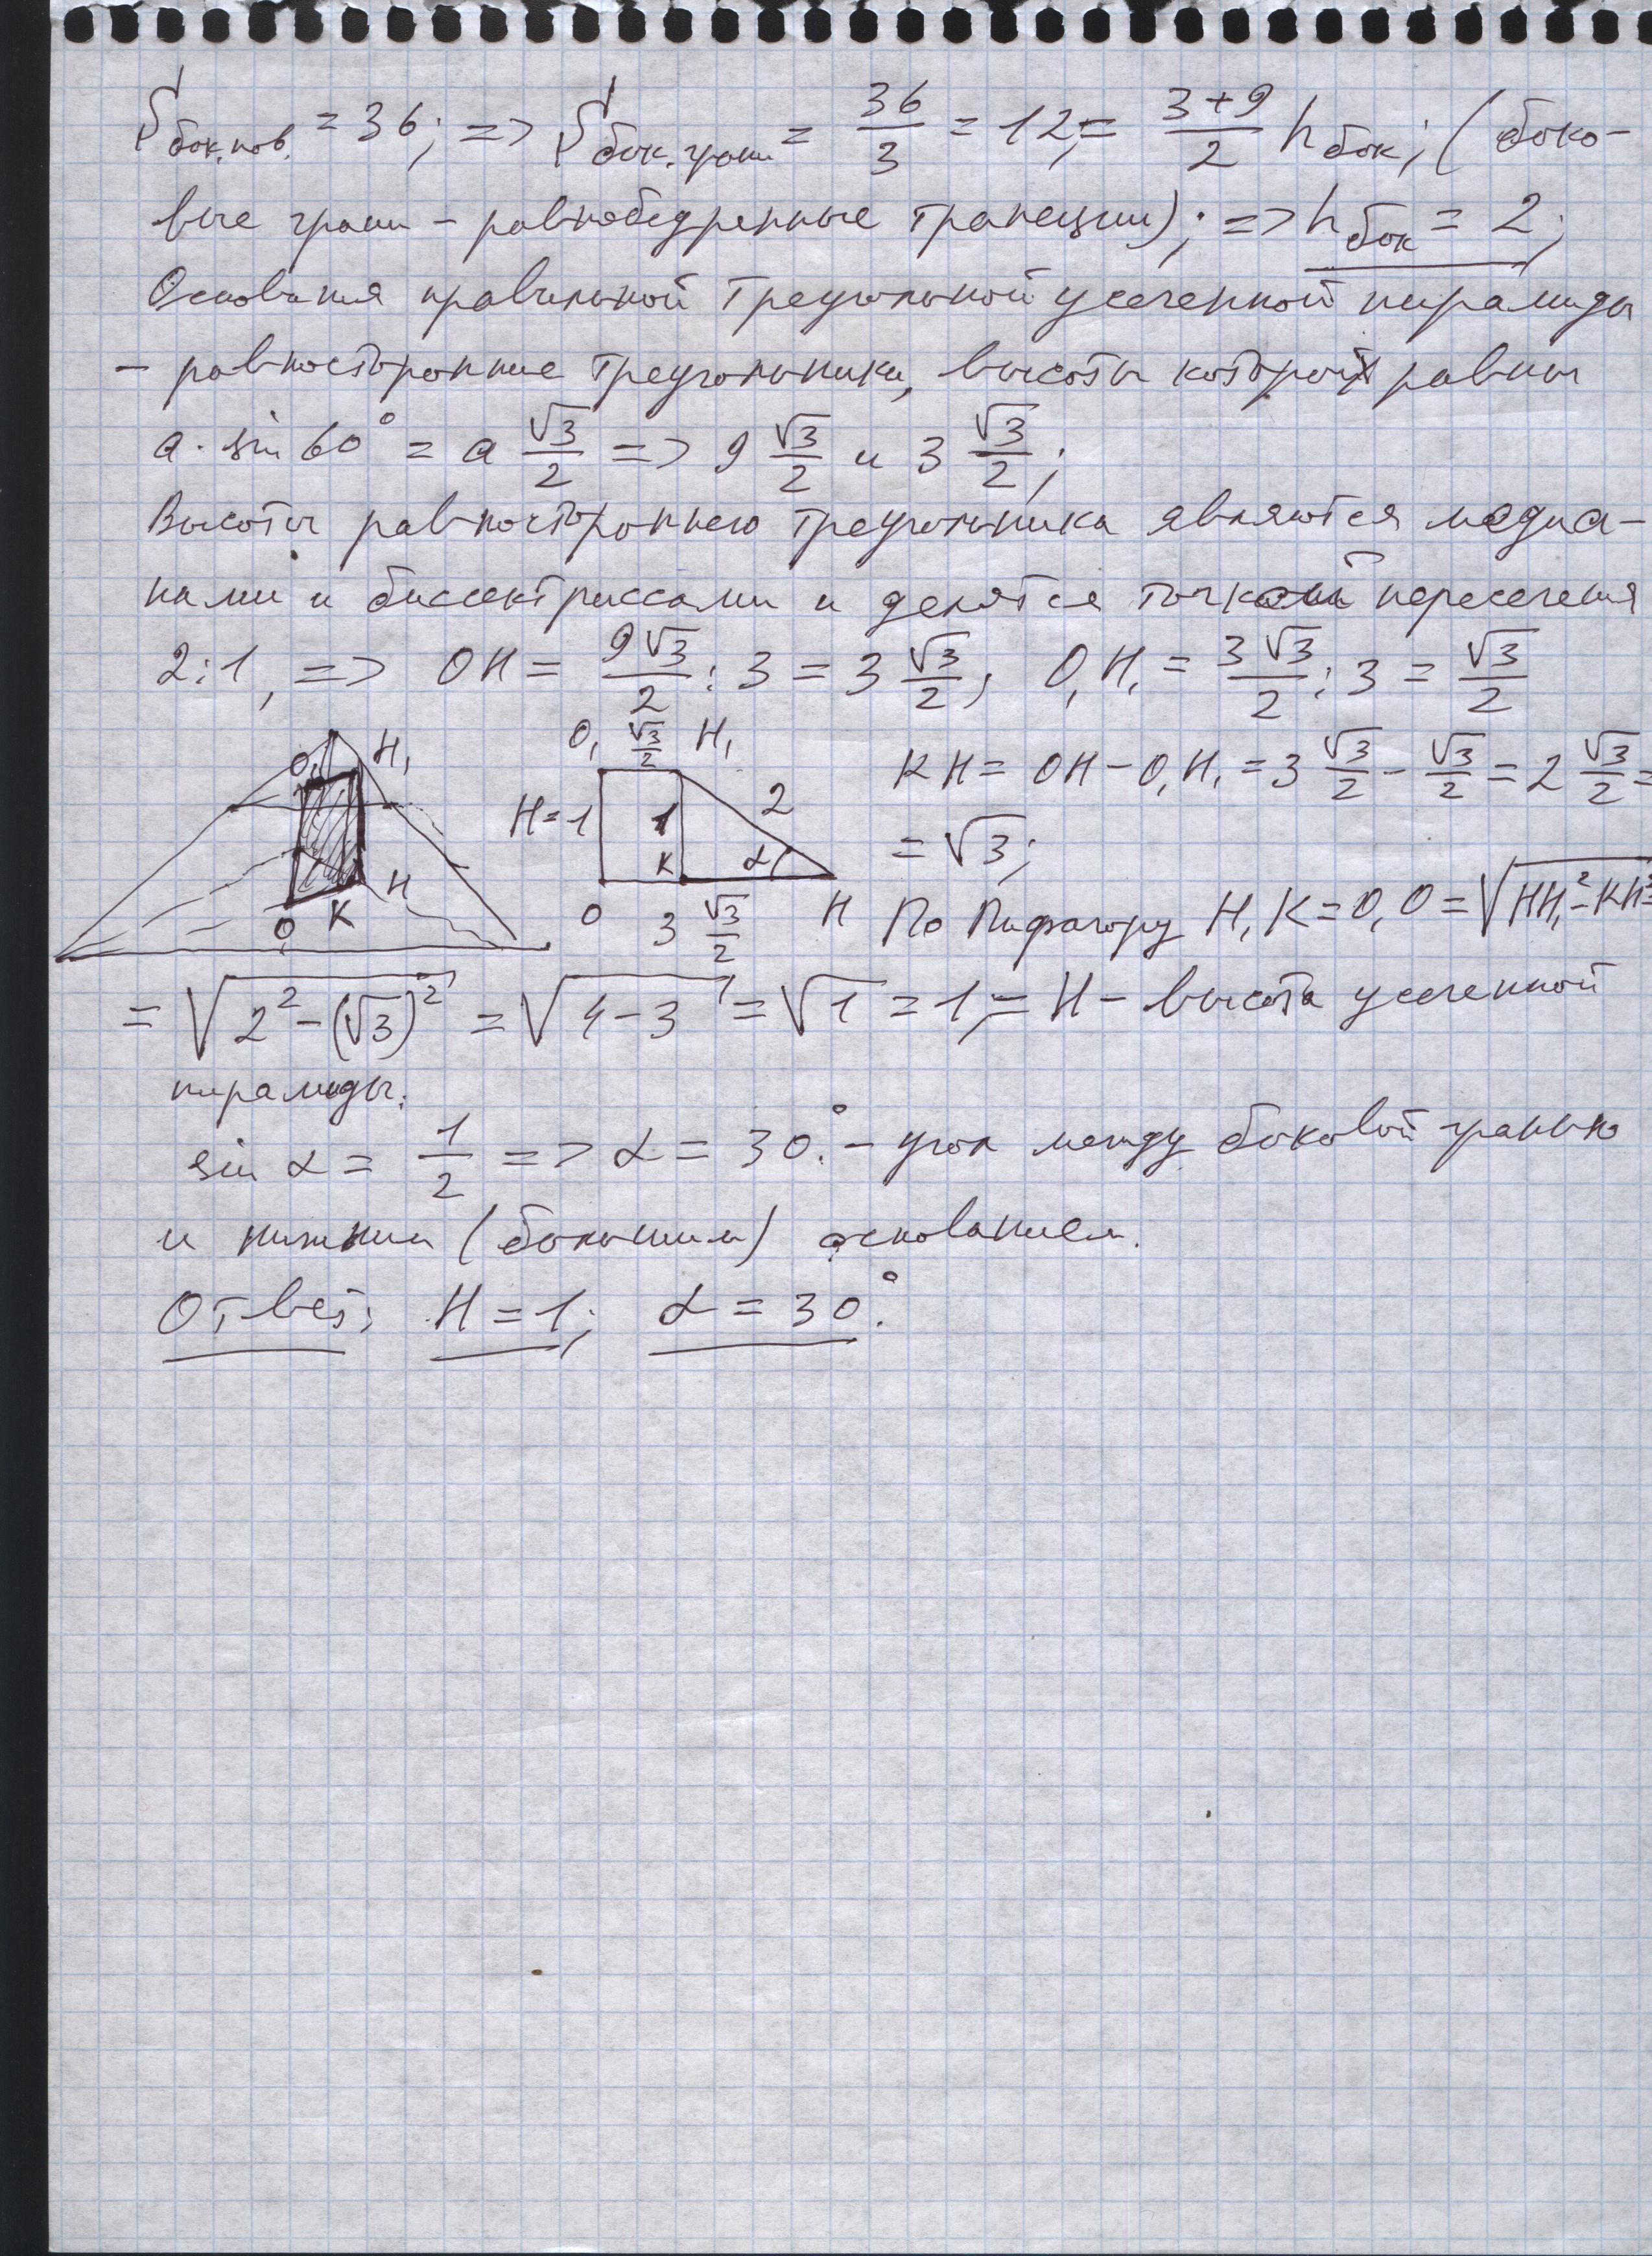 Sбок.пов. = 36; => Sбок.грани = 36/3 = 12; = (3+9)/2 hбок; (боко-
вые грани - равнобедренные трапеции); => hбок = 2;
Основания правильной треугольной усеченной пирамиды
- равносторонние треугольники, высоты которых равны
a · sin 60° = a √3/2 => 9 √3/2 и 3 √3/2;
Высоты равностороннего треугольника являются медиа-
нами и биссектриссами и делятся точкой пересечения
2:1, => OH = 9√3/2 : 3 = 3 √3/2; O₁H₁ = 3√3/2 : 3 = √3/2
O₁ H₁
O K H
O₁ √3/2 H₁
H=1 1 2
K α
O 3 √3/2 H
KH = OH - O₁H₁ = 3 √3/2 - √3/2 = 2 √3/2 =
= √3;
По Пифагору H₁K = O₁O = √(HH₁² - KH²) =
= √(2² - (√3)²) = √(4-3) = √1 = 1; = H - высота усеченной
пирамиды.
sin α = 1/2 => α = 30°. - угол между боковой гранью
и нижним (большим) основанием.
Ответ: H = 1; α = 30°.